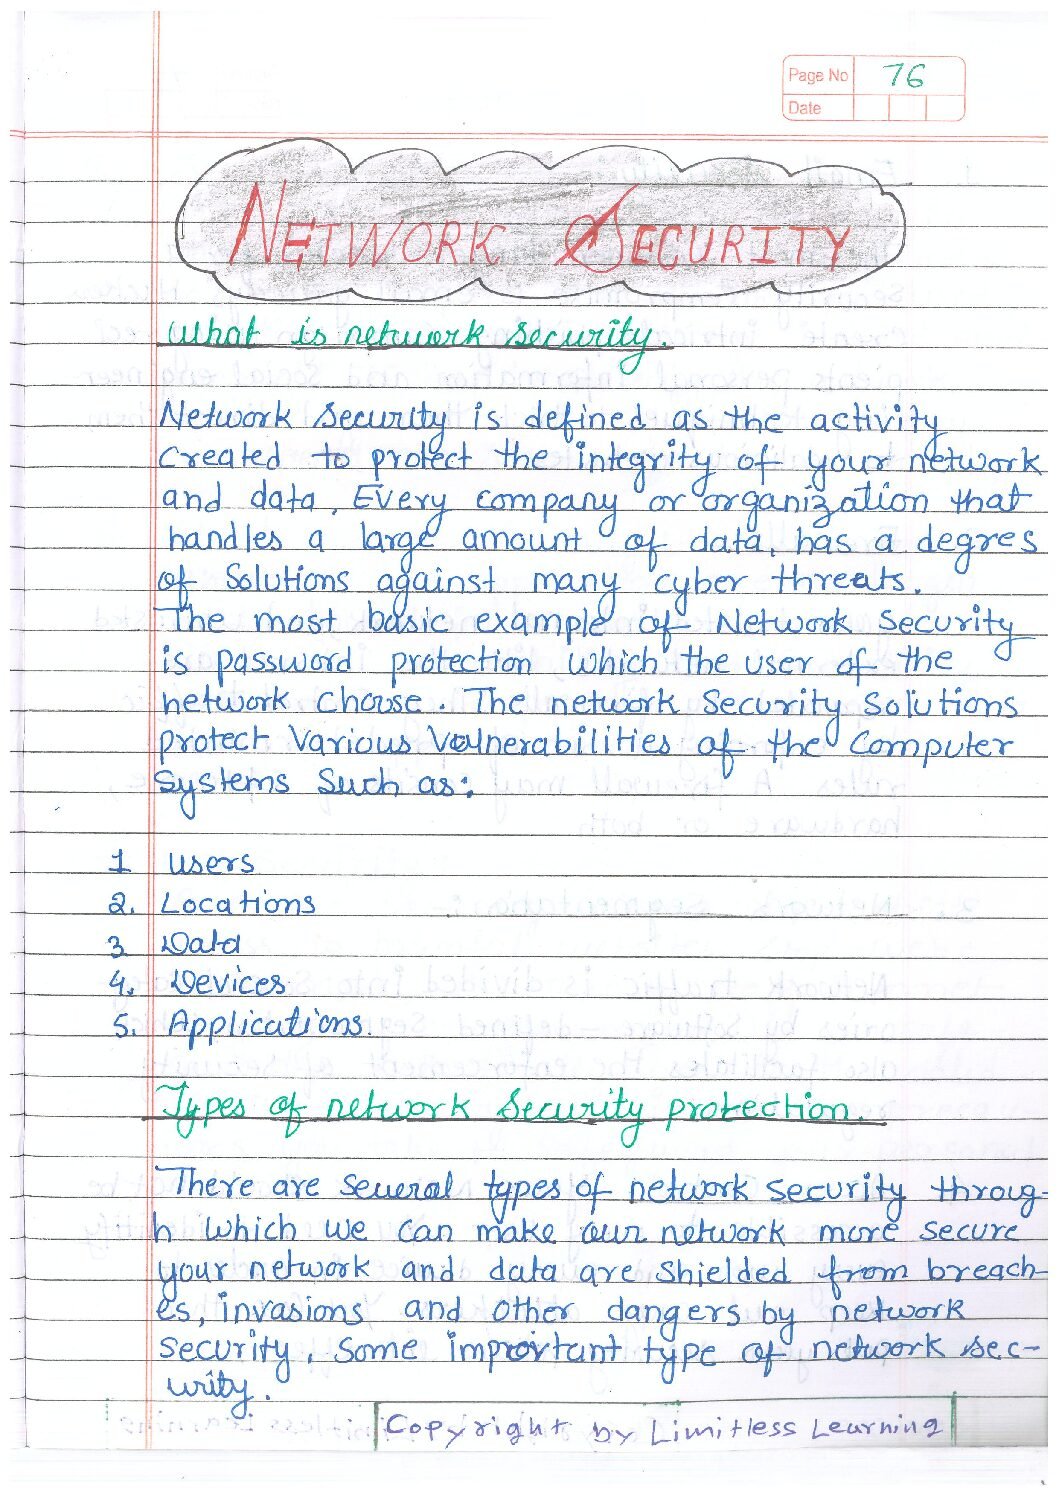 Page No 76
Date
NETWORK SECURITY
What is network security.
Network Security is defined as the activity
Created to protect the integrity of your network
and data. Every company or organization that
handles a large amount of data, has a degres
of Solutions against many cyber threats.
The most basic example of Network Security
is password protection which the user of the
network Choose. The network Security Solutions
protect Various Vulnerabilities of the Computer
Systems Such as:
1 Users
2. Locations
3 Data
4. Devices
5. Applications.
Types of network Security protection.
There are several types of network security throug-
h which we can make our network more secure
your network and data are Shielded from breach-
es, invasions and other dangers by network
security. Some important type of network sec-
urity.
Copyright by Limitless Learning